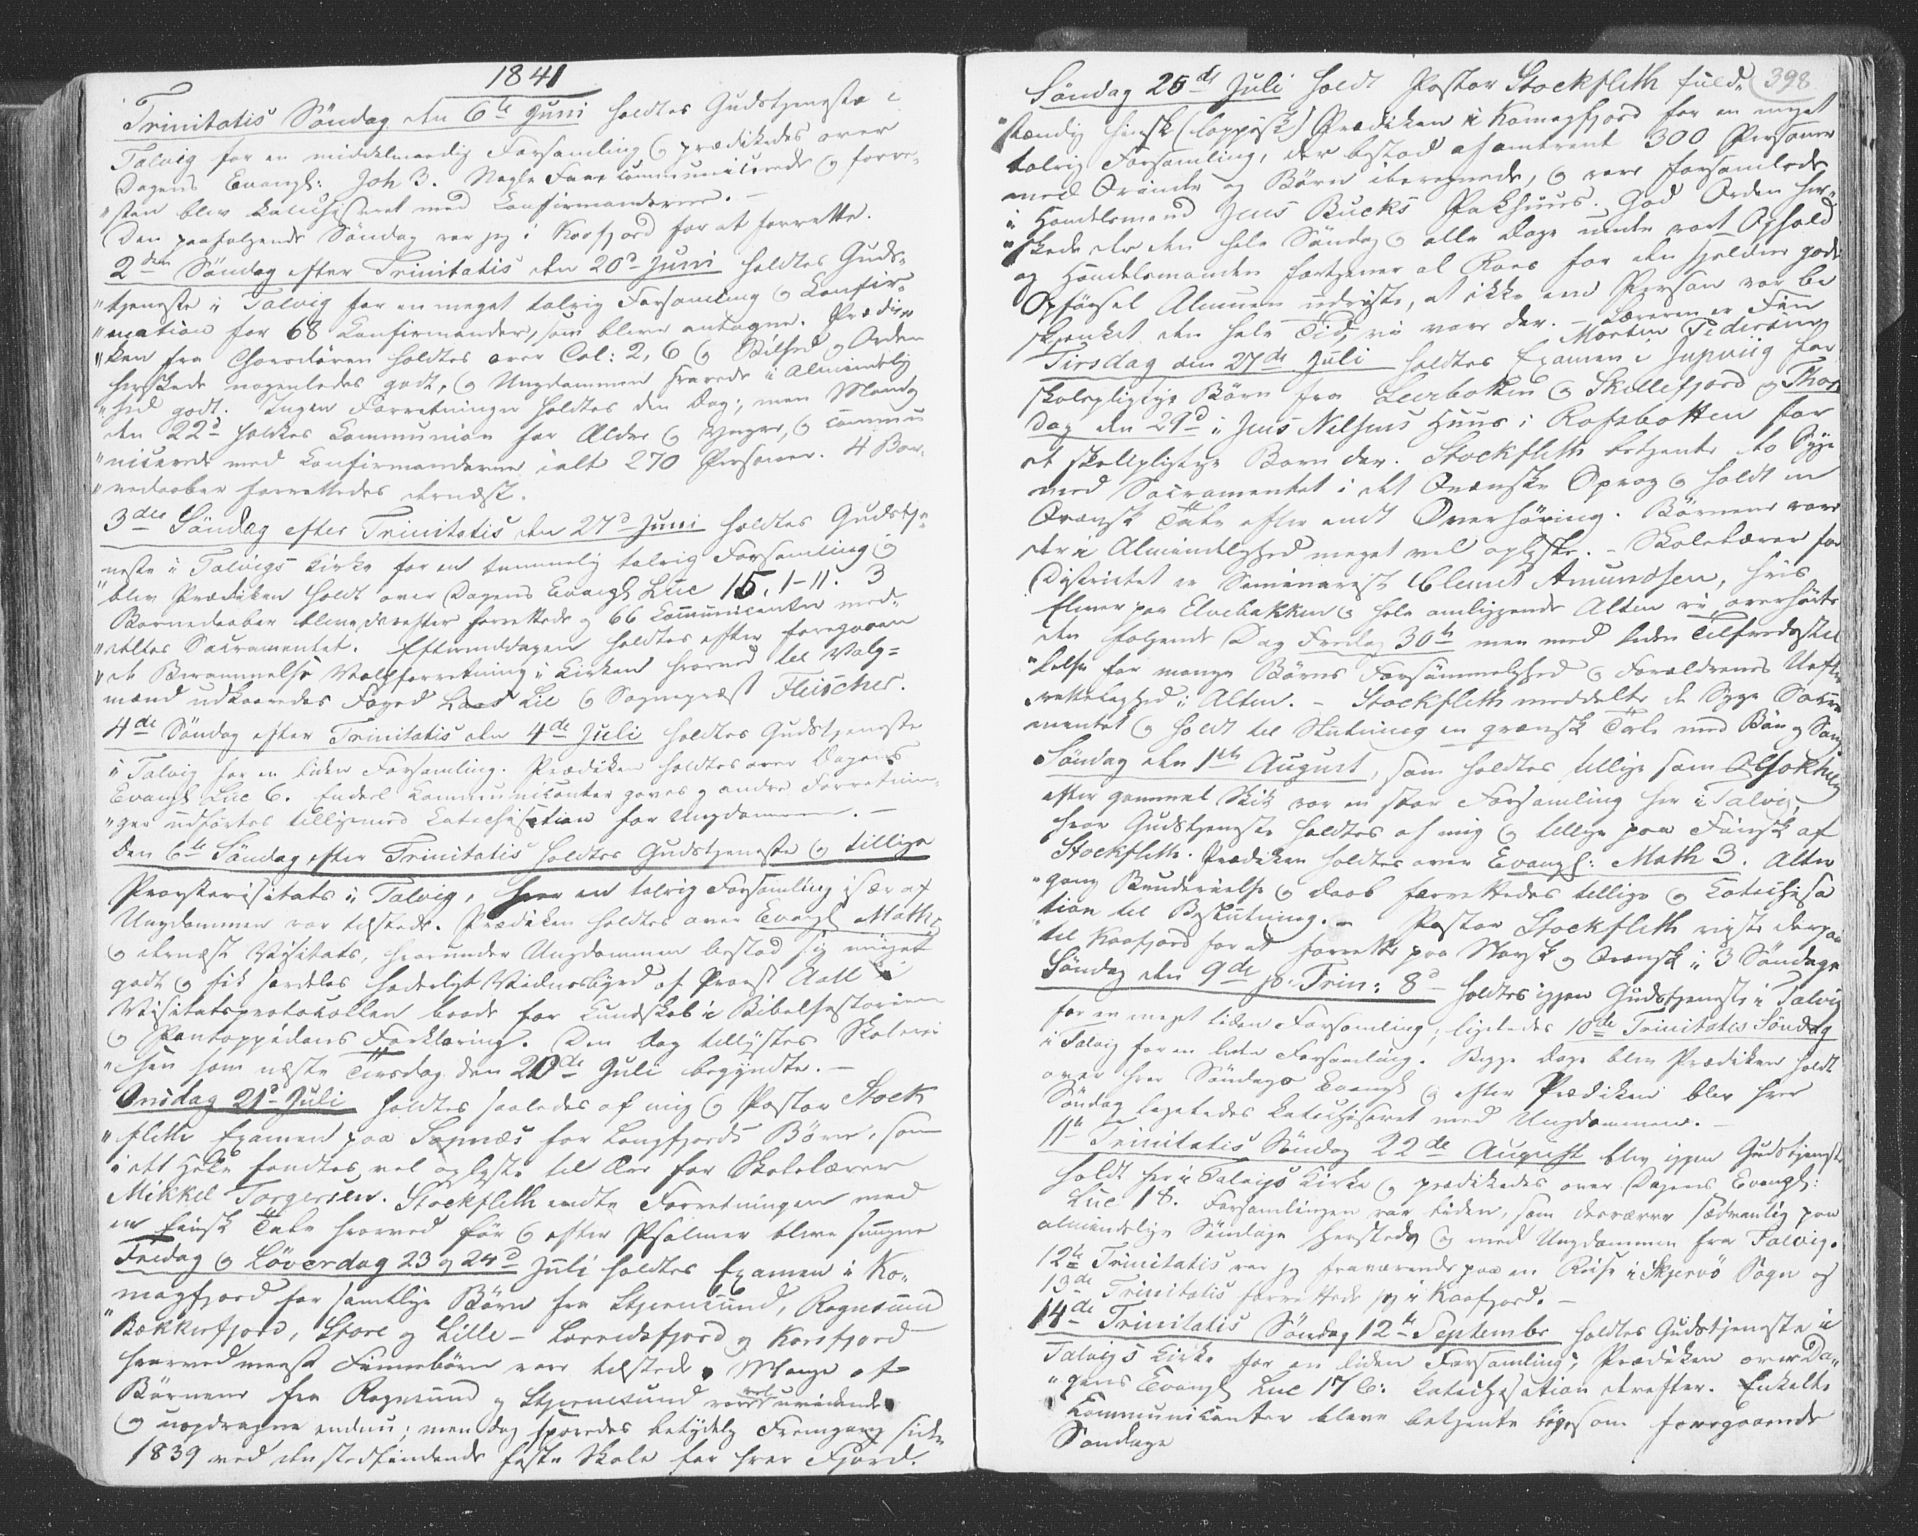 1841
Trinitatis Söndag den 6te Juni holdtes Gudstjeneste i
Talvig for en middelmaadig Forsamling og prædikedes over
Dagens Evangl: Joh 3. Nogle Faae communicerede og forre-
"sten blev katechiseret med Confirmanderne. —
Den paafølgende Søndag var jeg i Kaafjord for at forrette.
2den Søndag efter Trinitatis den 20d Juni holdtes Guds-
"tjeneste i Talvig for en meget talrig Forsamling og Confir-
"mation for 68 Confirmander, som bleve antagne. Prædi-
"ken fra Chorsdøren holdtes over Col: 2, 6 og Stilhed og Orden
herskede nogenledes godt, og Ungdommen svarede i Almindelig
"hed godt. Ingen Forretninger holdtes den Dag; men Mandag
den 22d holdtes Communion for Ældre og Yngre, og commu
"nicerede med Confirmanderne ialt 270 Personer. 4 Bar-
"nedaaber forrettedes dernæst.
3die Søndag efter Trinitatis den 27d Juni holdtes Gudstje-
"neste i Talvigs Kirke for en temmelig talrig Forsamling og
blev Prædiken holdt over Dagens Evangl Luc 15, 1-11. 3
Barnedaaber bleve derefter forrettede og 66 Communicanter med-
"deeltes Sacramentet. Eftermiddagen holdtes efter foregaaen
"de Berammelse Valgforretning i Kirken hvorved til Valg=
mænd udkaaredes Foged Lie og Sognepræst Fleischer.
4de Søndag efter Trinitatis den 4de Juli holdtes Gudstjeneste
i Talvig for en liden Forsamling. Prædiken holdtes over Dagens
Evangl Luc 6. Endeel Communicanter gaves og andre Forretnin-
"ger udførtes tilligemed Catechisation for Ungdommen. —
Den 6te Søndag efter Trinitatis holdtes Gudstjeneste og tillige
Provstevisitats i Talvig, hvor en talrig Forsamling især af
Ungdommen var tilstede. Prædiken holdtes over Evangl Math:
og dernæst Visitats, hvorunder Ungdommen bestod sig meget
godt og fik særdeles hæderligt Vidnesbyrd af Provst Aall i
Visitatsprotocollen baade for Kundskab i Bibelhistorien
og Pontoppidans Forklaring. Den Dag tillystes Skolevi
"sen som næste Tirsdag den 20de Juli begyndte. —
Onsdag 21d Juli holdtes saaledes af mig og Pastor Stock
"fleth Examen paa Sopnæs for Langfjords Børn, som
i det Hele fandtes vel oplyste til Ære for Skolelærer
Mikkel Torgersen. Stockfleth endte Forretningen med
en finsk Tale hvorved før og efter Psalmer bleve sungne
Fredag og Løverdag 23 og 24d Juli holdtes Examen i Ko-
magfjord for samtlige Børn fra Stjernsund, Rognsund
"Bækkerfjord, Store og Lille – Lerredsfjord og Korsfjord
hvorved meest Finnebørn vare tilstede. Mange af
Børnene fra Rognsund og Stjernesund vare vel uvidende
og uopdragne endnu; men dog sporedes betydelig Fremgang siden
1839 ved den stedfindende faste Skole for hver Fjord.
398
Søndag 25de Juli holdt Pastor Stockfleth fuld-
"stændig finsk (lappisk) Prædiken i Komagfjord for en meget
talrig Forsamling, der bestod af omtrent 300 Personer
med Qvinder og Børn iberegnede, og vare forsamlede
i Handelsmand Jens Bucks Pakhuus. God Orden her-
"skede der den hele Søndag og alle Dage under vort Ophold
og Handelsmanden fortjener al Roes for den sjeldne gode
Opførsel Almuen udviste, at ikke een Person var be
skjænket den hele Tid, vi vare der. – Læreren er Fin
Morten Pedersen
Tirsdag den 27de Juli holdtes Examen i Jupviig for
skolepligtige Børn fra Leerbotten og Skillefjord og Thors
dag den 29d i Jens Nilsens Huus i Rafsbotten for
de skolepligtige Børn der. Stockfleth betjente to Syge
med Sacramentet i det Qvænske Sprog og holdt en
Qvænsk Tale efter endt Overhøring. Børnene vare
der i Almindelighed meget vel oplyste. – Skolelærer for
Districtet er Seminarist Clemet Amundsen, hvis
Elever paa Elvebakken og hele omliggende Alten vi overhørte
den følgende Dag Fredag 30te men med liden Tilfredsstil
"lelse for mange Børns Forsømmelighed og Forældrenes Uefter
rettelighed i Alten. – Stockfleth meddelte de Syge Sacra
mentet og holdt til Slutning en qvænsk Tale med Bøn og Sang
Søndag den 1ste August, som holdtes tillige som Olsoktie
efter gammel Skik var en stor Forsamling her i Talvig,
hvor Gudstjeneste holdtes af mig og tillige paa Finsk af
Stockfleth. Prædiken holdtes over Evangl: Math 3. Alter
"gang Beundervelse og Daab forrettedes tillige og Catechisa
tion til Beslutning. – Pastor Stockfleth reiste derpaa
til Kaafjord for at forrette paa Norsk og Qvænsk i 3 Søndage
Søndag den 9de p. Trin: 8d holdtes igjen Gudstjeneste i Talvig
for en meget liden Forsamling; ligeledes 10de Trinitatis Søndag
i Talvig for en liden Forsamling. Begge Dage blev Prædiken holdt
over hver Søndags Evangl og efter Prædiken blev hver
Søndag ligeledes katechiseret med Ungdommen. –
11te Trinitatis Søndag 22de August blev igjen Gudstjeneste
holdt her i Talvigs Kirke og prædikedes over Dagens Evangl:
Luc 18. Forsamlingen var liden, som desværre sædvanlig paa
almindelige Søndage herstedes og med Ungdommen fra Talvig.
12te Trinitatis var jeg fraværende paa en Reise i Skjervø Sogn og
13de Trinitatis forrettede jeg i Kaafjord. –
14de Trinitatis Søndag 12te Septembr holdtes Gudstjeneste i
Talvigs Kirke for en liden Forsamling, Prædiken over Da-
"gens Evangl Luc 17 C: Katechisation derefter. Enkelte
Kommunicanter bleve betjente ligesom foregaaende
Søndage